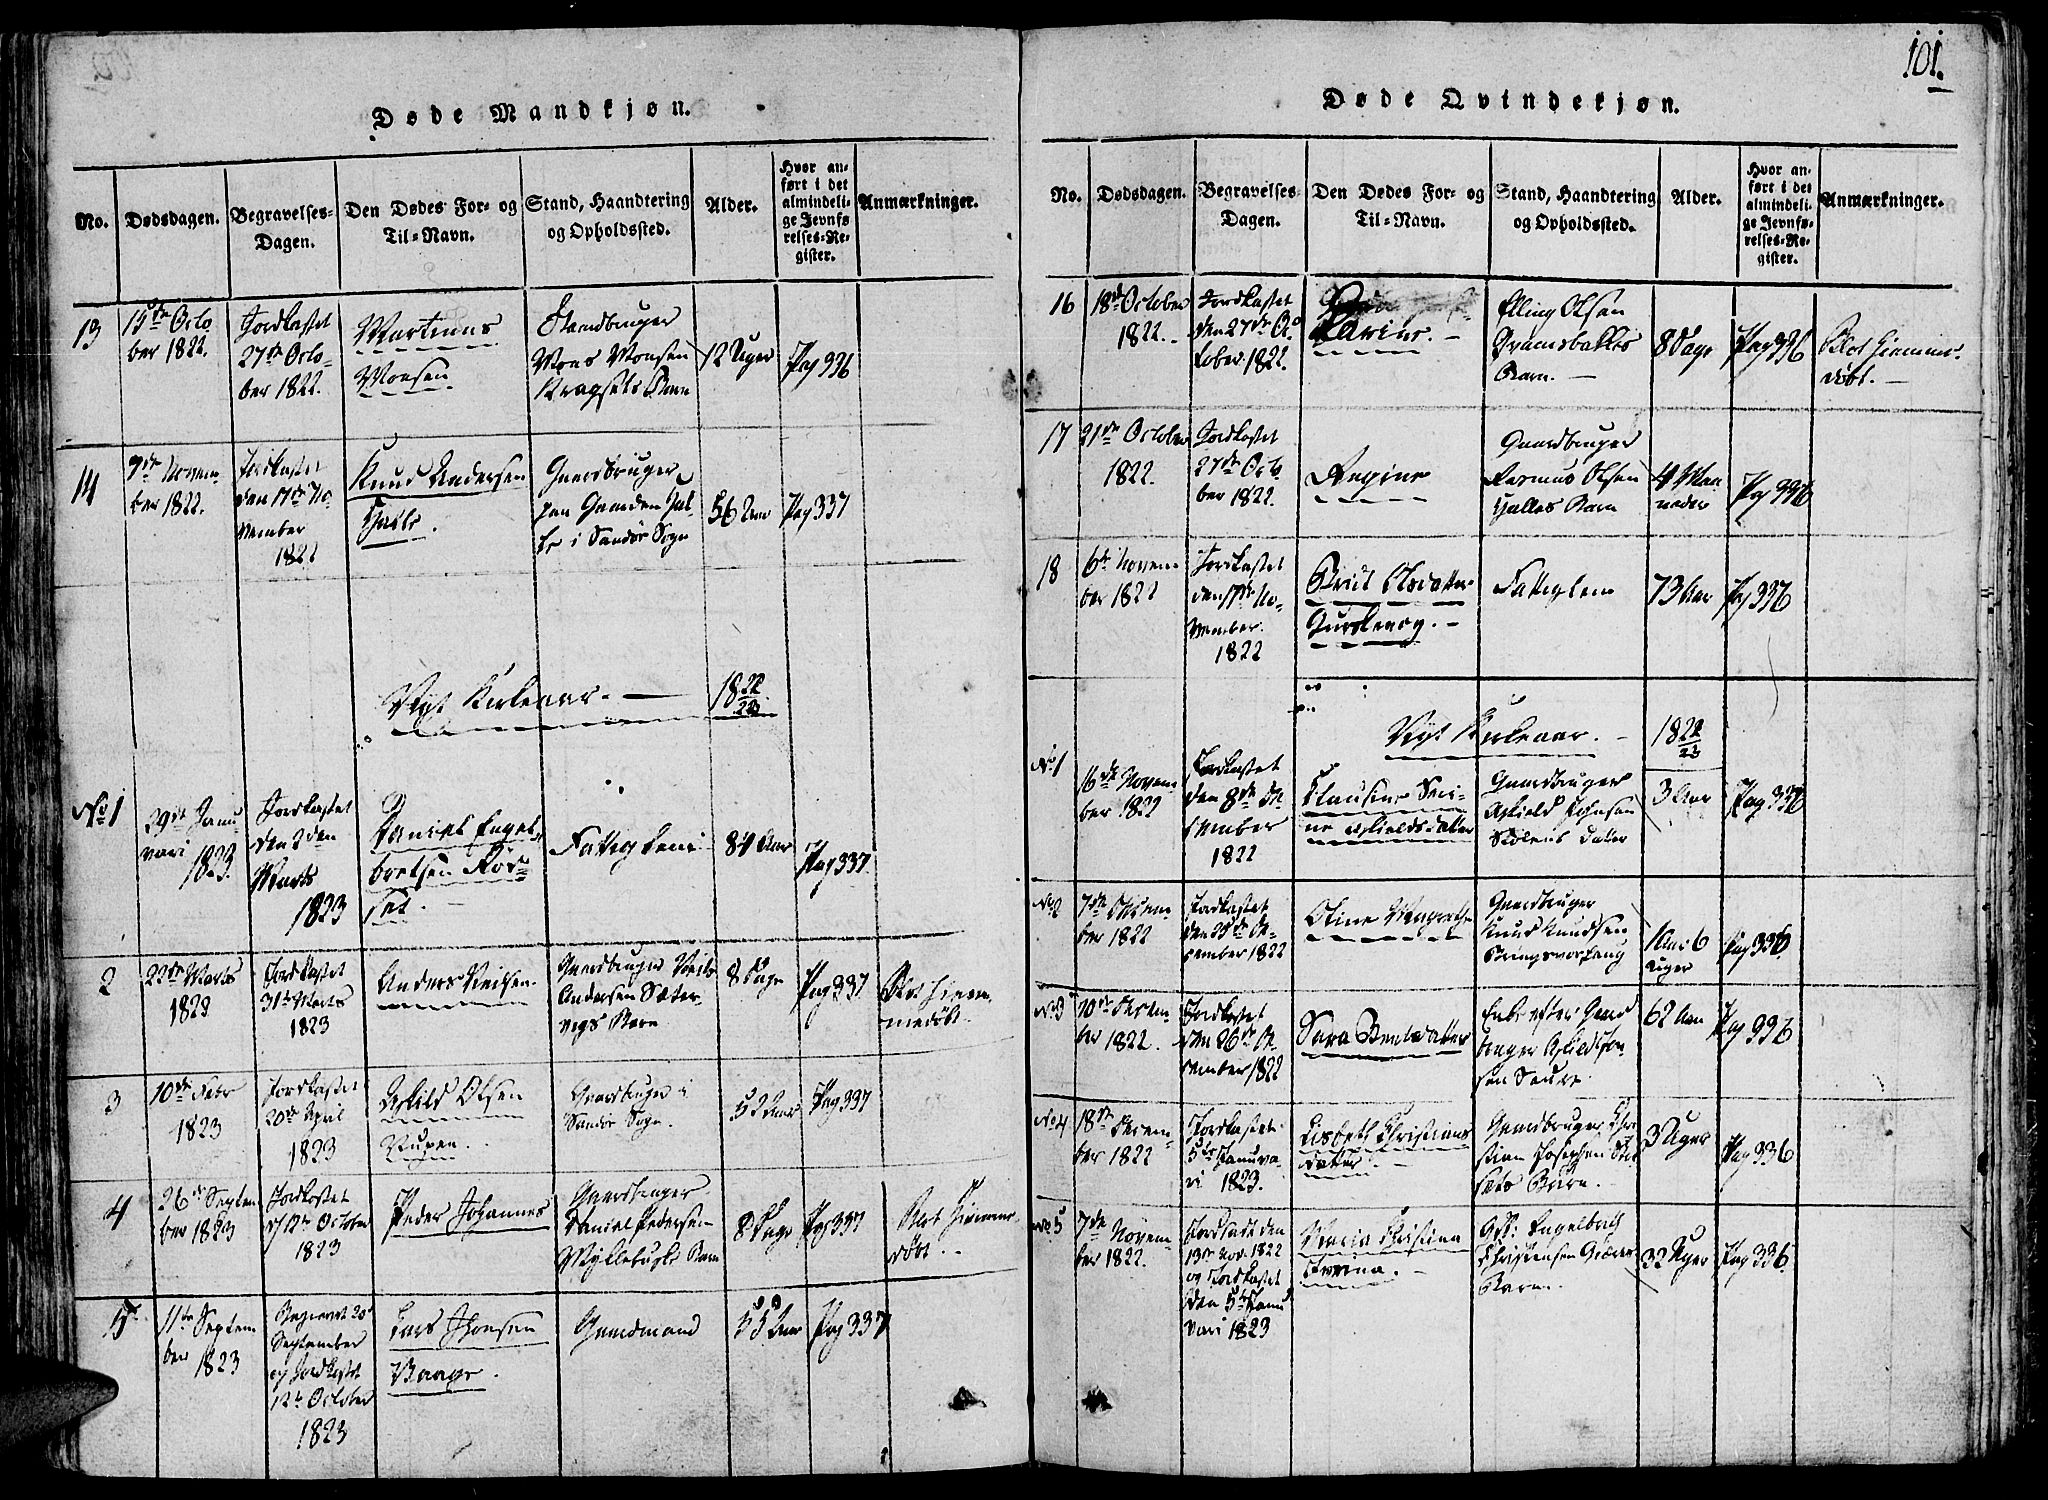 101.
Døde Mandkjøn.
No.
Dødsdagen.
Begravelses-
Dagen.
Den Dødes For- og
Til-Navn.
Stand, Haandtering
og Opholdssted.
Alder.
Hvor an-
ført i det
almindeli-
ge Jevnfø-
relses-Re-
gister.
Anmærkninger.
13
15de Octo
ber 1822.
Jordkastet
27de Octo-
ber 1822.
Martinus
Monsen
Mons Monsen
Barn
12 Uger
Pag 336
14
7de Novem-
ber 1822.
Jordkastet
den 17de No
vember
1822
Knud Andersen
Gaardbruger
i Sandøe Sogn
56 Aar
Pag 337
Nyt Kirkeaar. —
1822/23
No 1
29de Janu
vari
1823.
Jordkastet
den 2den
Marts
1823
Daniel Engel
bretsen Rør-
set. —
Fattiglem
84 Aar
Pag 337.
2
22de Marts
1823
Jordkastet
31te Marts
1823
Anders Nielsen.
Gaardbruger Niels
Andersen Sæter-
vigs Barn
8 Dage
Pag 337
Blot hiem-
medøbt.
3
10de Febr
1823
Jordkastet
20de April
1823
Askild Olsen
Gaardbruger i
Sandøe Sogn.
52 Aar
Pag 337
4
26de Septem
ber 1823
Jordkastet
d 12te October
1823
Peder Johannes
Gaardbruger
Daniel Pedersen
Barn
8 Dage
Pag 337
Blot Hiemme-
døbt. -
5
11te Septem
ber
1823
Begravet 20de
September
og Jordkastet
12te October
1823
Lars Jonsen
Baage.
Gaardmand
55 Aar
Pag 337
Døde Qvindekjøn.
No.
Dødsdagen.
Begravelses-
Dagen.
Den Dødes For- og
Til-Navn.
Stand, Haandtering
og Opholdssted.
Alder.
Hvor an-
ført i det
almindeli-
ge Jevnfø-
relses-Re-
gister.
Anmærkninger.
16
18de October
1822.
Jordkastet
den 27de Oc
tober 1822.
Karine. -
Elling Olsen
Barn. —
8 Dage
Pag 336
Blot Hiemme-
døbt. —
17
21de October
1822.
Jordkastet
27de Octo
ber 1822.
Regine
Gaardbruger
Rasmus Olsen
Barn
4 Maa
neder
Pag 336
18
6te Novem-
ber 1822
Jordkastet
den 17de No-
vember.
1822
Brit Olsdatter
Fattiglem
73 Aar
Pag 336
Nyt Kirkeaar. -
1822/23
No 1
16de Novem-
ber 1822
Jordkastet
den 8de De
cember
1822
Clausine Seri-
ne Askieldsdatter
Gaardbruger
Askield Johnsen
Datter
3 Aar
Pag 336
No 2
7de Decem-
ber 1822
Jordkastet
den 25de De-
cember 1822
Oline Margrethe
Gaardbruger
Knud Knudsen
1 Aar 6
Uger
Pag 336
No 3
10de Decem-
ber 1822.
Jordkastet
den 26de De-
cember 1822
Sara Bentsdatter
Enke efter Gaard
bruger
62 Aar
Pag 336
No 4
18de Decem-
ber 1822
Jordkastet
5te Januva-
ri 1823.
Lisbeth Christians
datter. —
Gaardbruger Chri
stian Josephsen
Barn. -
3 Uger
Pag 336
No 5
7de
Novem-
ber 1822.
Jordfæstet den
13de Nov. 1822
og Jordkastet
den 5te Janu
vari 1823
Maria Christina
Engelbrecht
Christensen
Barn.
32 Uger
Pag 336